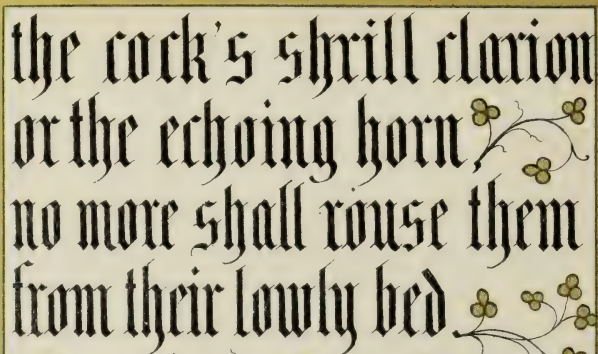 the cock's shrill clarion
or the echoing horn,
no more shall rouse them
from their lowly bed.